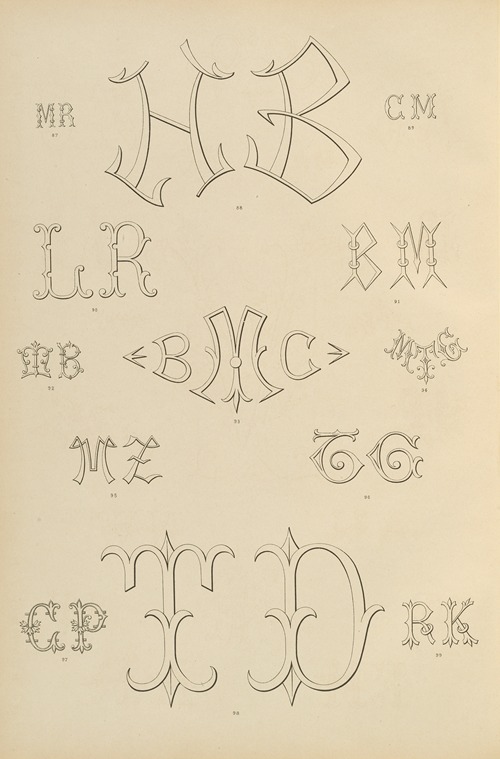 MR
87
HB
88
CM
89
LR
90
BM
91
TB
92
BMC
93
MTG
94
MZ
95
TG
96
CP
97
TD
98
RK
99